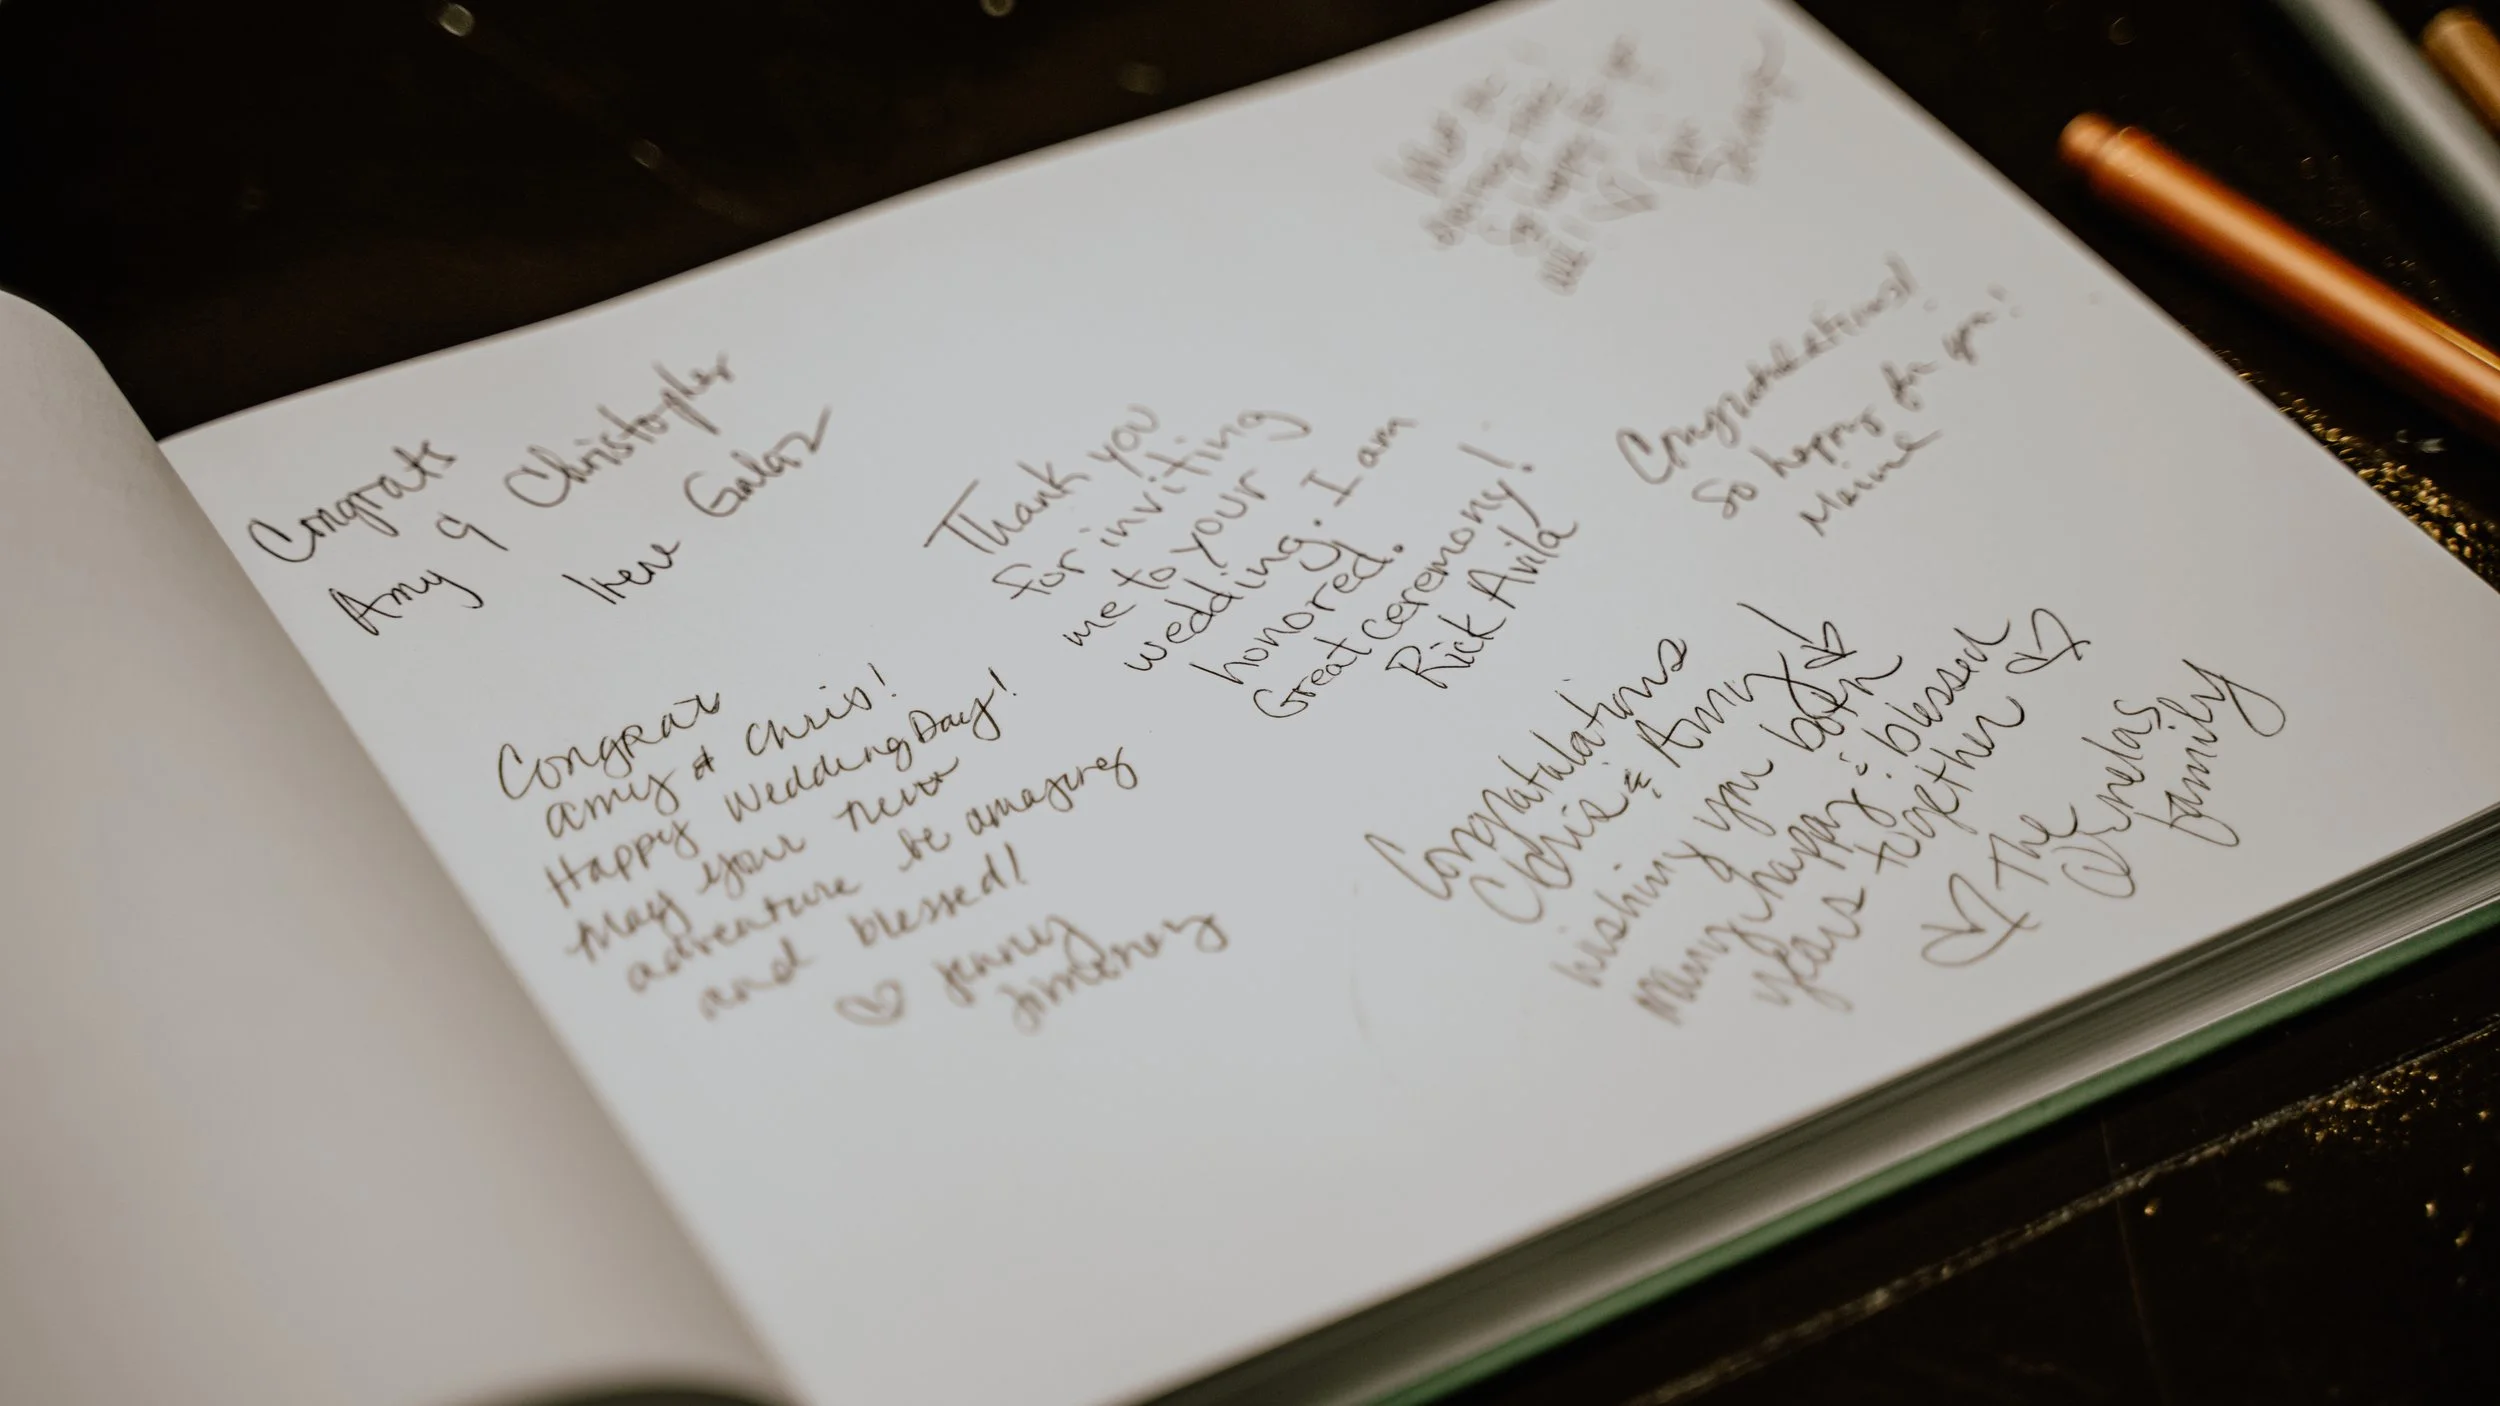 Congrats
Amy & Christopher
Irene Galaz
Thank you
for inviting
me to your
wedding. I am
honored.
Great ceremony!
Rick Avila
Congratulations!
So happy for you!
Maine
Congrats
Amy & Chris!
Happy Wedding Day!
May your new
adventure be amazing
and blessed!
♡ Jenny
Jimenez
Congratulations
Chris & Amy! ♡
wishing you both
many happy & blessed
years together ♡
♡ The
family